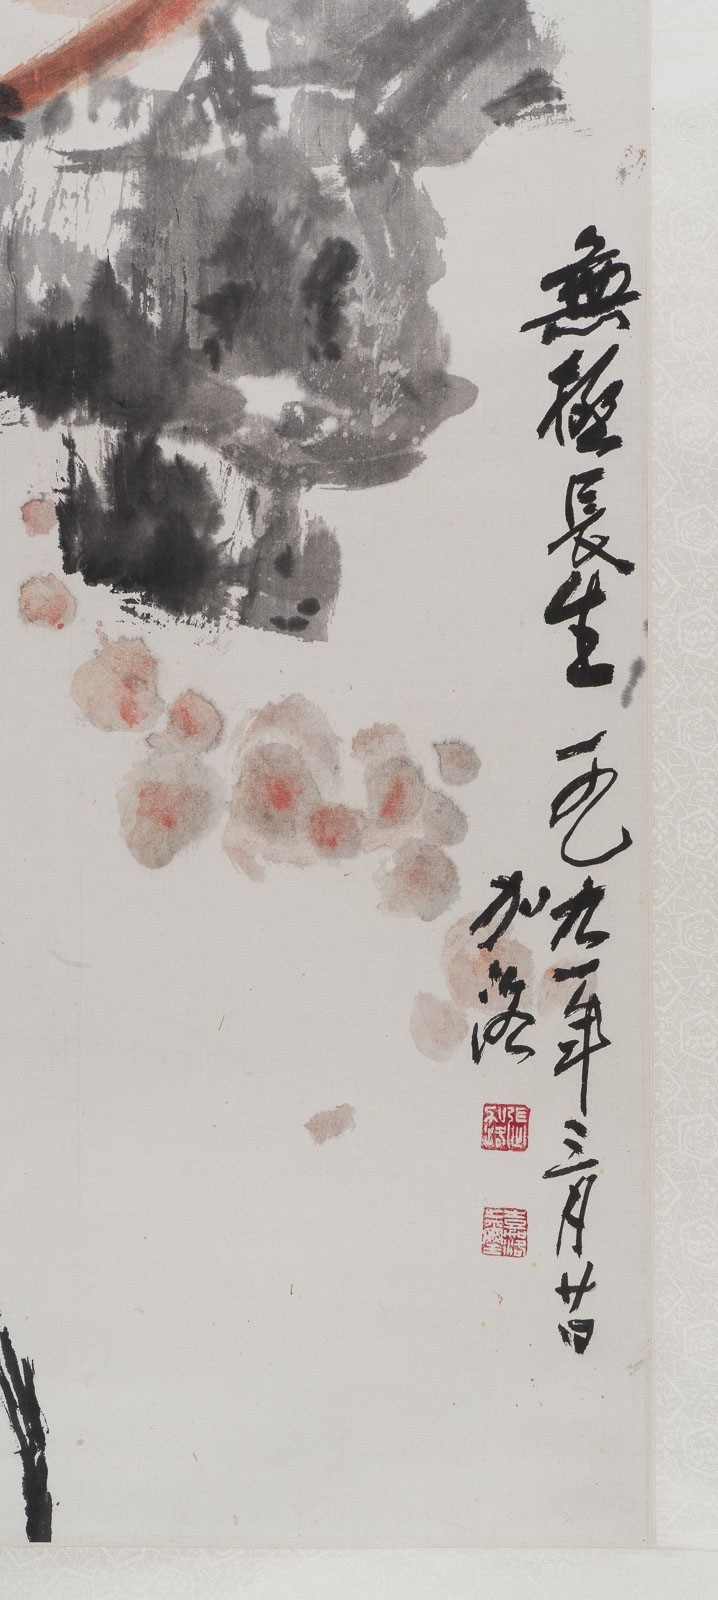 無極長生 一九九一年三月廿日
加洛